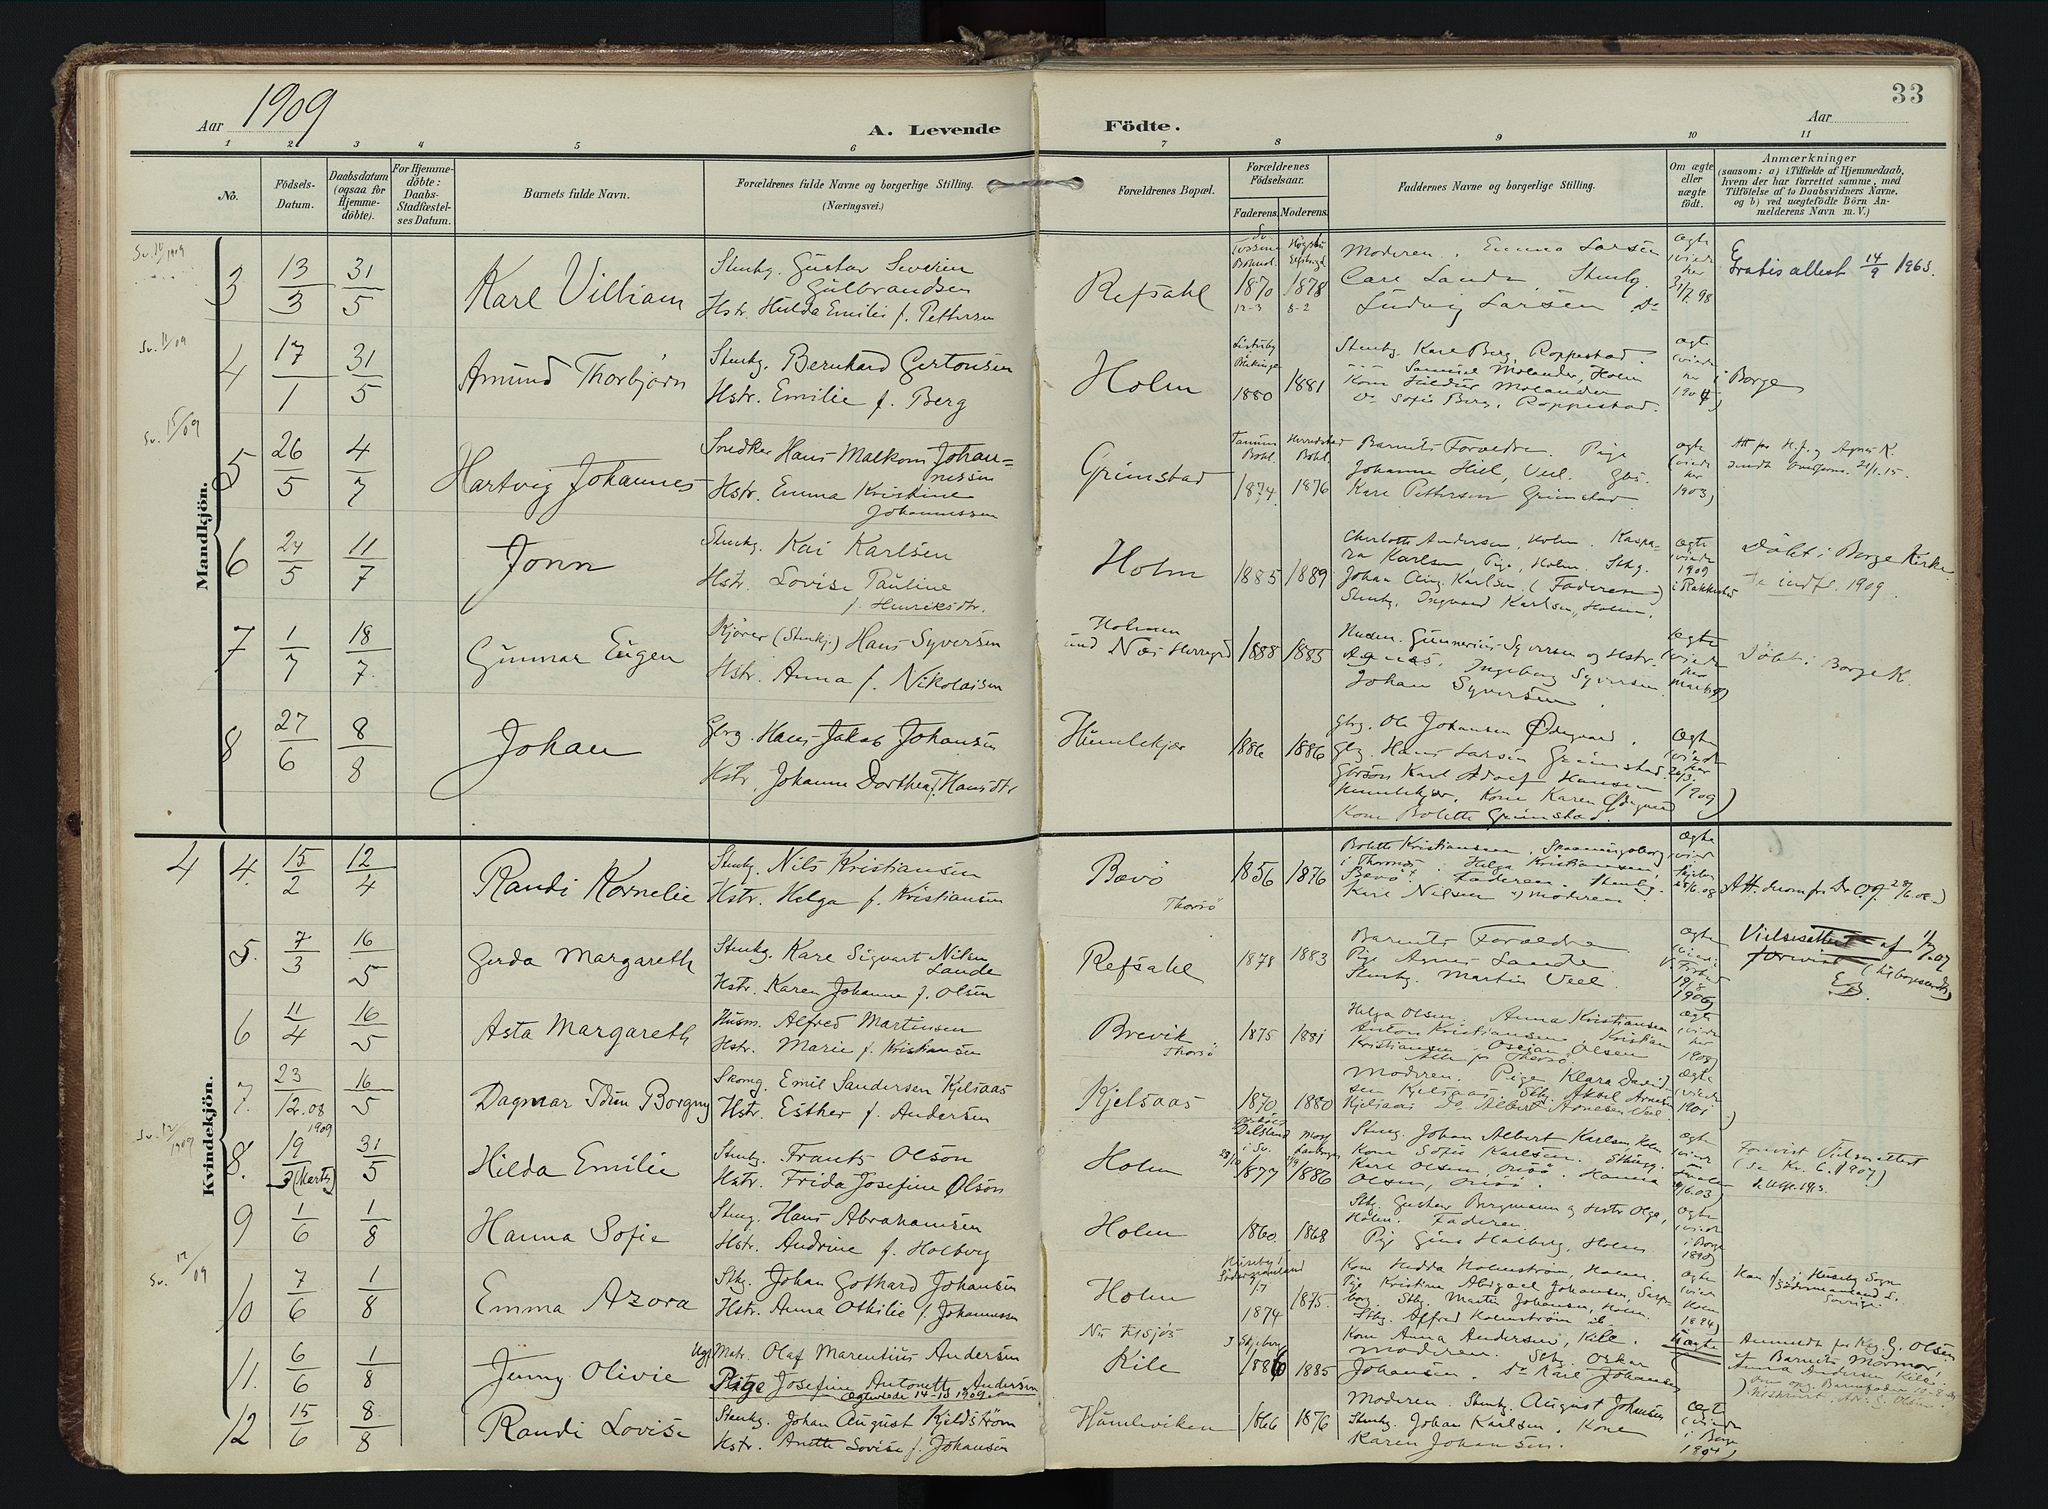 33
Aar 1909
A. Levende Födte.
Aar
1 2. 3 4 5 6 7 8 9 10 11
No.
Födsels-Datum.
Daabsdatum (ogsaa for Hjemmedöbte).
For Hjemmedöbte: Daabs-Stadfæstelses Datum.
Barnets fulde Navn.
Forældrenes fulde Navne og borgerlige Stilling.
(Næringsvei.)
Forældrenes Bopæl.
Forældrenes Födselsaar.
Faderens. Moderens.
Faddernes Navne og borgerlige Stilling.
Om ægte eller uægte födt.
Anmærkninger
(saasom: a) i Tilfælde af Hjemmedaab, hvem der har forrettet samme, med Tilföielse af to Daabsvidners Navne, og b) ved uægtefödte Börn Anmelderens Navn m. V.)
Mandkjön.
3 13/3 31/5 Karl Villiam
Stenhg. Gustav Severin Gulbrandsen
Hstr. Hulda Emilie f. Pettersen
Refsahl 1870 12-3 1878 8-2
Moderen. Emma Larsen
Carl Lande, Stenhg.
Ludvig Larsen Do
ægte (viede her 31/7 98
Gratis attest 14/9 1963.
4 17/1 31/5 Amund Thorbjørn
Stenhg. Bernhard Gertonsen
Hstr. Emilie f. Berg
Holm 1880 1881
Stenhg. Karl Berg, Roppestad.
Samuel Molander, Holm
Kone Hildur Molander
Do Sofie Berg, Roppestad.
ægte (viede her i Borge 1904)
5 26/5 4/7 Hartvig Johannes
Snedker Hans Malkom Johannessen
Hstr. Emma Kristine Johannessen
Grimstad Tanum Bohl. 1874 1876
Barnets Forældre. Pige
Johanne Hiel, Veel. Gbr.
Karl Pettersen Grimstad
ægte (viede her 1903)
6 24/5 11/7 Jonn
Stenhg. Kai Karlsen
Hstr. Lovise Pauline f. Henriksdtr.
Holm 1885 1889
Charlotte Andersen, Holm. Kaspara Karlsen, Pige, Holm. Sthg.
Johan Aug. Karlsen, (Faderen)
Stenhg. Ingvard Karlsen, Holm.
ægte (viede 1909 i Rakkestad
Döbt i Borge Kirke
indf. 1909.
7 1/7 18/7 Gunnar Eugen
Kjører (Stenhg.) Hans Syversen
Hstr. Anna f. Nikolaisen
Holmen und Næs Herregrd 1888 1885
Gunnerius Syversen og Hstr.
Agnes, Ingeborg Syversen.
Johan Syversen.
ægte (viede her
Döbt i Borge K.
8 27/6 8/8 Johan
Gbrg. Hans Jakob Johansen
Hstr. Johanne Dorthea f. Hansdtr
Humlekjær 1886 1886
Gbrg. Ole Johansen Ødegaard,
Gbrg. Hans Larsen Grimstad.
Gbrsøn Karl Adolf Hansen
Humlekjær, Kone Karen Ødegaard
Kone Bolette Grimstad.
ægte (viede her 1909)
Kvindekjön.
4 4. 15/2 12/4 Randi Kornelie
Stenhg. Nils Kristiansen
Hstr. Helga f. Kristiansen
Bævö Thorsö 1856 1876
Bolette Kristiansen, Spaaningsborg
i Thorsnæs. Helga Kristiansen,
Bevö. Faderen. Stenhg.
Karl Nilsen, Moderen.
ægte
5. 7/3 16/5 Gerda Margareth
Stenhg. Karl Sigvart Nilsen Lande
Hstr. Karen Johanne f. Olsen
Refsahl 1878 1883
Barnets Forældre
Pige Agnes Lande.
Stenhg. Martin Veel.
ægte (viede 1906)
Vielsesattest af 1/7.07
forevist
6 11/4 16/5 Asta Margareth
Husm. Alfred Martinsen
Hstr. Marie f. Kristiansen
Brevik Thorsö 1875 1881
Helga Olsen. Anna Kristiansen
Anton Kristiansen. Kristian
Kristiansen. Oscian Olsen
Alle fr Thorsö.
ægte (viede her 1908)
7. 23/12.08 16/5 Dagmar Idun Borgny
Skomg. Emil Sandersen Kjelsaas
Hstr. Esther f. Andersen
Kjelsaas 1870 1880
Moderen. Pige Klara Davidsen Kjelsaas, Stbg. Aksel Arnesen
Kjelsaas Do Albert Arnesen Veel
ægte (viede 1901)
8. 19/3 (Marts) 1909 31/5 Hilda Emilie
Stenhg. Frantz Olson
Hstr. Frida Josefine Olson
Holm Dalsland i Sv. 1877 1886
Stenhg. Johan Albert Karlsen, Holm
Kone Sofie Karlsen. Sthugg.
Karl Olsen. Hanna
Olsen,
ægte
Forevist Vielsesattest
9 1/6 1/8 Hanna Sofie
Stenhg. Hans Abrahamsen
Hstr. Andrine f. Holberg
Holm 1860. 1868
Stbg. Gustav Bergmann og Hstr Olga,
Holm. Faderen.
Pige Gina Halberg, Holm
ægte (viede i Borge 1890)
10 7/6 1/8 Emma Azora
Stbg. Johan Gothard Johansen
Hstr. Anna Othilie f. Johannessen
Holm 1874 1875.
Kone Hedda Holmström, Holm.
Pige Kristine Abigael Johansen, Sarpsborg, Stbg. Martin Johansen, Holm.
Stbg. Alfred Holmström ib.
ægte (viet Holm 1894)
Han f. i Huseby Sogn
Södermanland i Sverige
11. 6/6 1/8 Jenny Olivie
Ugf. Matr. Olaf Marentius Andersen
Pige Josefine Antonette Andersen
Ægteviede 14-10 1909
Kile 1886 1885
Kone Anna Andersen, Kile.
Moderen. Stbg. Oskar
Johansen. Do Karl Johansen
Uægte
Anmeldt fr Kgs. G. Olsen
af Barnets Mormor
Anna Andersen Kile.
12 15/6 8/8 Randi Lovise
Stenhg. Johan August Kjeldström
Hstr. Anette Lovise f. Johansen
Humleviken 1866 1876
Moderen. Stenhg. August Johansen
Stenhg. Johan Karlsen, Kone
Karen Johansen.
ægte (viede i Borge 1894)